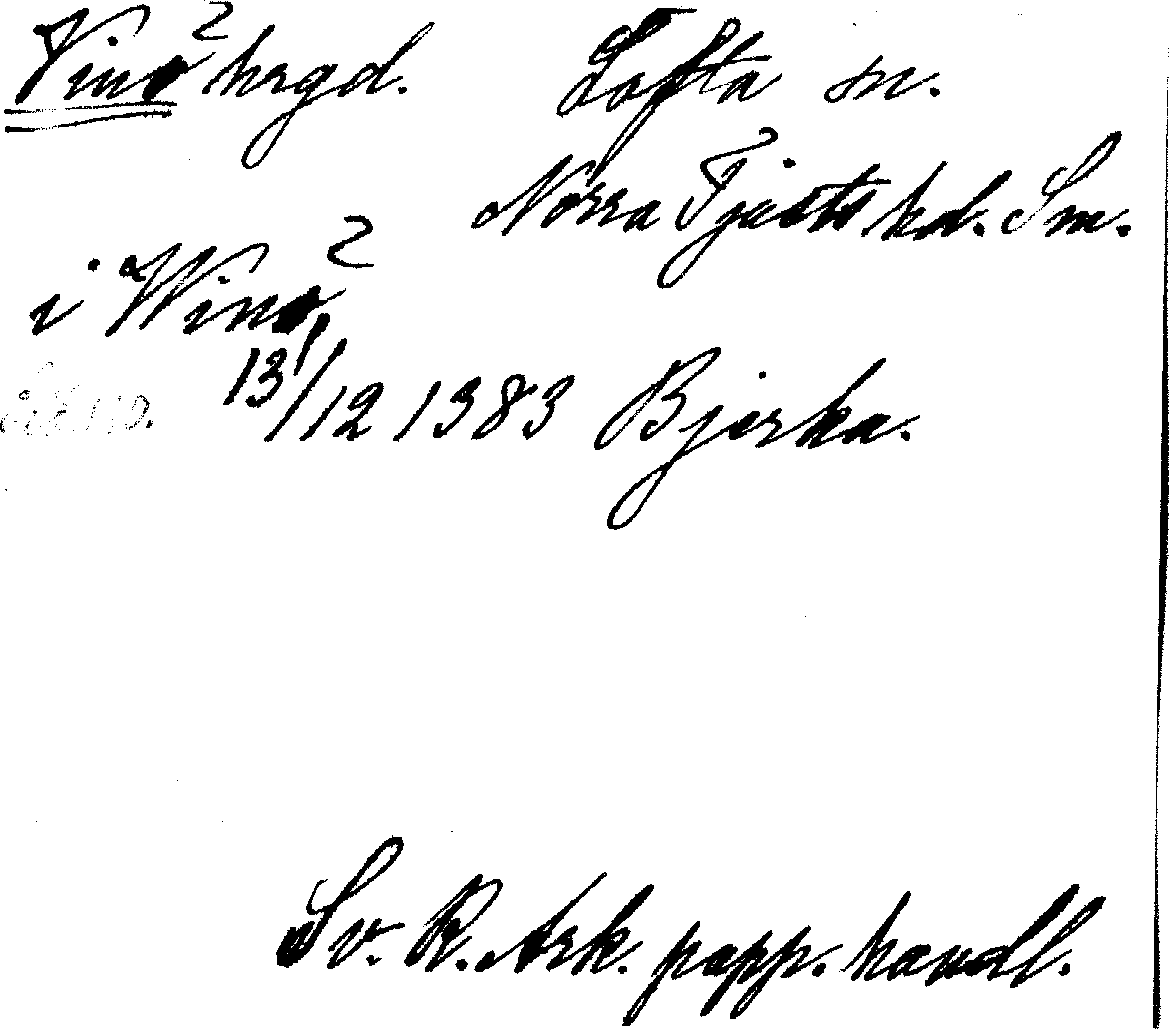 Vino² hrgd. Lofta sn.
Norra Tjusts hd. Sm.
i Wino²,
13/12 1383 Bjerka.
Sv. R. Ark. papp. handl.